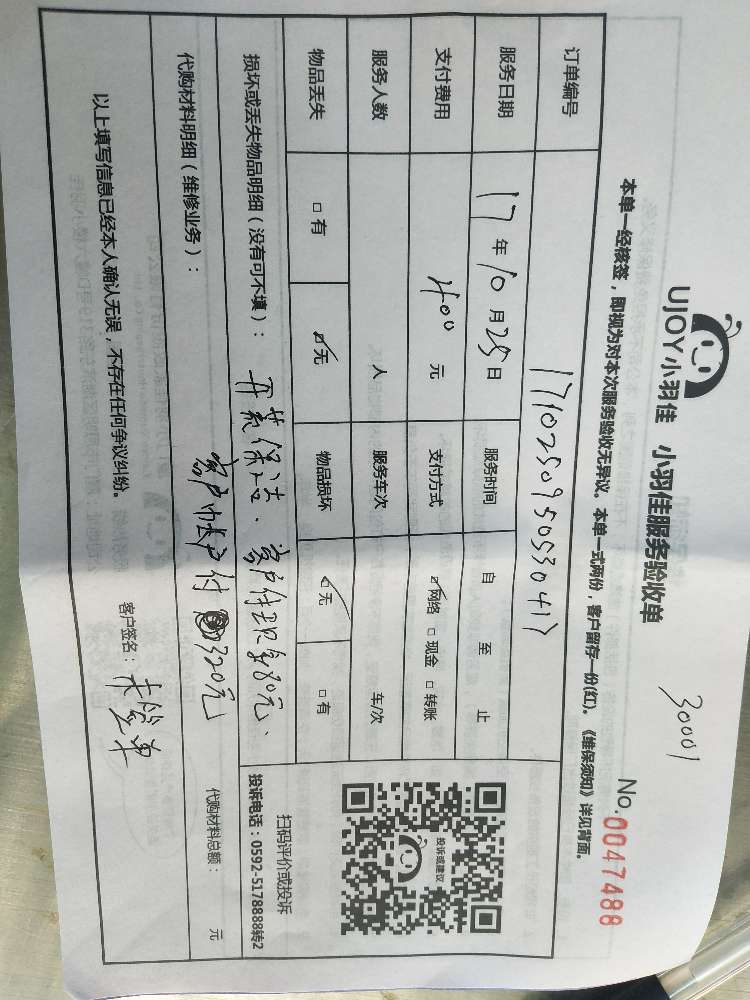 30001
UJOY小羽佳 小羽佳服务验收单 No.0047488
本单一经核签，即视为对本次服务验收无异议。本单一式两份，客户留存一份(红)。《维保须知》详见背面。
订单编号 17102509505530417
服务日期 17年10月25日 服务时间 自 至 止
支付费用 400 元 支付方式 ☑网络 □现金 □转账
服务人数 人 服务车次 车/次
物品丢失 □有 ☑无 物品损坏 ☑无 □有
投诉或建议
扫码评价或投诉
投诉电话：0592-5178888转2
损坏或丢失物品明细（没有可不填）：
客户付现金80元、
代购材料明细（维修业务）： 代购材料总额： 元
客户帐户付320元
以上填写信息已经本人确认无误，不存在任何争议纠纷。 客户签名：未签单